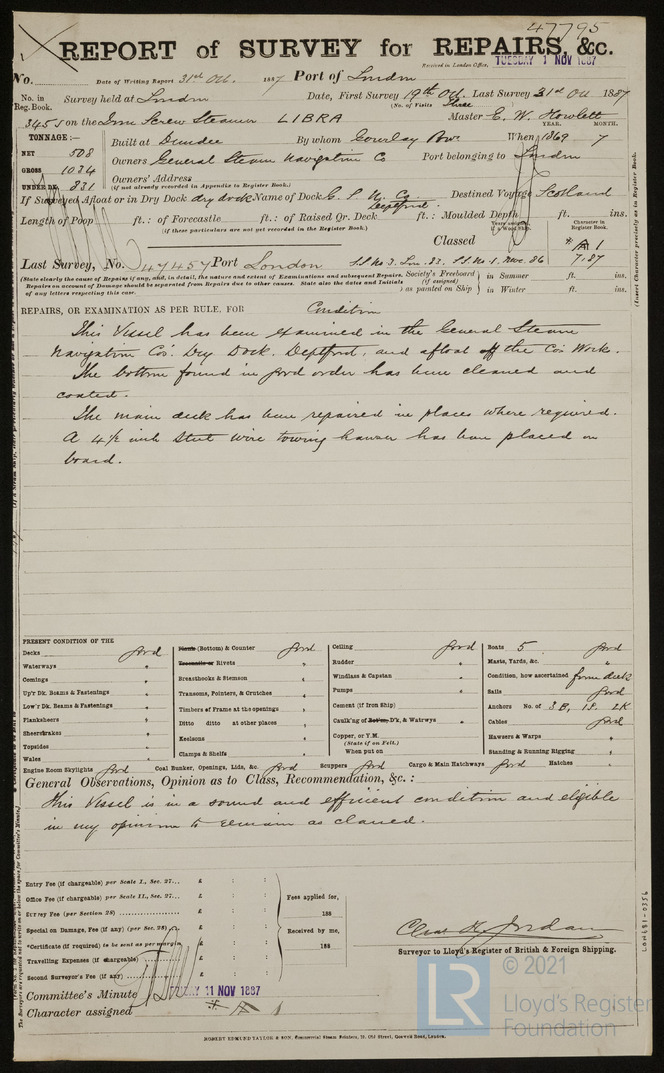 47795
REPORT of SURVEY for REPAIRS, &c.
Received in London Office, TUESDAY 1 NOV 1887
No. Date of Writing Report 31st Oct. 1887 Port of London
No. in Reg. Book. Survey held at London Date, First Survey 19th Oct. Last Survey 31st Oct 1887
(No. of Visits Three
3455 on the Iron Screw Steamer LIBRA Master E. W. Howlett
TONNAGE:— YEAR. MONTH.
NET 508 Built at Dundee By whom Gourlay Bros. When 1869 7
GROSS 1024 Owners General Steam Navigation Co Port belonging to London
UNDER DK. 831 Owners' Address
(if not already recorded in Appendix to Register Book.)
If Surveyed Afloat or in Dry Dock dry dock Name of Dock G. S. N. Co Deptford. Destined Voyage Scotland
Length of Poop ft.: of Forecastle ft.: of Raised Qr. Deck ft.: Moulded Depth ft. ins.
(if these particulars are not yet recorded in the Register Book.)
Classed A 1
Character in Register Book.
7.87
Last Survey, No. 47457 Port London SS No 3. Lon. 83. SS No 1. Nov. 86
(State clearly the cause of Repairs if any, and, in detail, the nature and extent of Examinations and subsequent Repairs. Repairs on account of Damage should be separated from Repairs due to other causes. State also the dates and Initials of any letters respecting this case.
Society's Freeboard (if assigned) as painted on Ship } in Summer ft. ins.
in Winter ft. ins.
(Insert Character precisely as in Register Book.
REPAIRS, OR EXAMINATION AS PER RULE, FOR Condition
This Vessel has been examined in the General Steam
Navigation Co's. Dry Dock. Deptford, and afloat off the Co's Works.
The bottom found in good order has been cleaned and
coated.
The main deck has been repaired in places where required.
A 4½ inch Steel wire towing hawser has been placed on
board.
PRESENT CONDITION OF THE
Decks good
Waterways "
Comings "
Up'r Dk. Beams & Fastenings "
Low'r Dk. Beams & Fastenings "
Planksheers "
Sheerstrakes "
Topsides "
Wales "
Planks (Bottom) & Counter good
Treenails or Rivots "
Breasthooks & Stemson "
Transoms, Pointers, & Crutches "
Timbers of Frame at the openings "
Ditto ditto at other places "
Keelsons "
Clamps & Shelfs "
Ceiling good
Rudder "
Windlass & Capstan "
Pumps "
Cement (if Iron Ship) "
Caulk'ng of Bot'm, D'k, & Watrwys "
Copper, or Y.M.
(State if on Felt.)
When put on
Boats 5 good
Masts, Yards, &c. "
Condition, how ascertained from deck
Sails good
Anchors No. of 3B, 1S. 2K
Cables good
Hawsers & Warps "
Standing & Running Rigging "
Engine Room Skylights good Coal Bunker, Openings, Lids, &c. good Scuppers good Cargo & Main Hatchways good Hatches "
General Observations, Opinion as to Class, Recommendation, &c.:
This Vessel is in a sound and efficient condition and eligible
in my opinion to remain as classed.
Entry Fee (if chargeable) per Scale I., Sec. 27... £ : :
Office Fee (if chargeable) per Scale II., Sec. 27... £ : :
Survey Fee (per Section 28) £ : :
Special on Damage, Fee (if any) (per Sec. 28) £ : :
*Certificate (if required) to be sent as per margin £ : :
Travelling Expenses (if chargeable) £ : :
Second Surveyor's Fee (if any) £ : :
Fees applied for,
188
Received by me,
188
Chas K. Jordan
Surveyor to Lloyd's Register of British & Foreign Shipping.
Committee's Minute FRIDAY 11 NOV 1887
Character assigned A 1
LON681-0356
ROBERT EDMUND TAYLOR & SON, Commercial Steam Printers, 19, Old Street, Goswell Road, London.
LR
© 2021
Lloyd's Register
Foundation